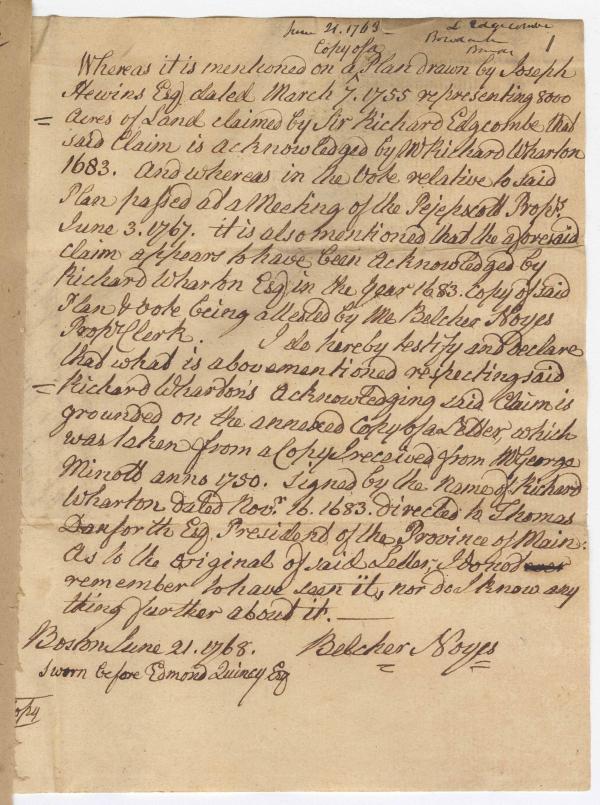 June 21. 1768 -
L Edgecombe
Bowdoin
1
Copy of a
Whereas it is mentioned on a Plan drawn by Joseph
Hewins Esq dated March 7. 1755 representing 8000
= Acres of Land claimed by Sir Richard Edgcombe that
said Claim is acknowledged by Mr Richard Wharton
1683. And whereas in the Vote relative to said
Plan passed at a Meeting of the Pejepscott Propr.s
June 3. 1767. it is also mentioned that the aforesaid
claim appears to have been Acknowledged by
Richard Wharton Esq in the Year 1683. Copy of said
Plan & Vote being attested by Me Belcher Noyes
Propr. Clerk. I do hereby testify and Declare
that what is abovementioned respecting said
= Richard Wharton's Acknowledging said Claim is
grounded on the annexed Copy of a Letter, which
was taken from a Copy I received from Mr George
Minott anno 1750. signed by the name of Richard
Wharton dated Novr. 16. 1683. directed to Thomas
Danforth Esq. President of the Province of Main:
As to the Original of said Letter, I do not
remember to have seen it, nor do I know any
thing further about it. —
Boston June 21. 1768. Belcher Noyes
Sworn before Edmond Quincy Esq
opy